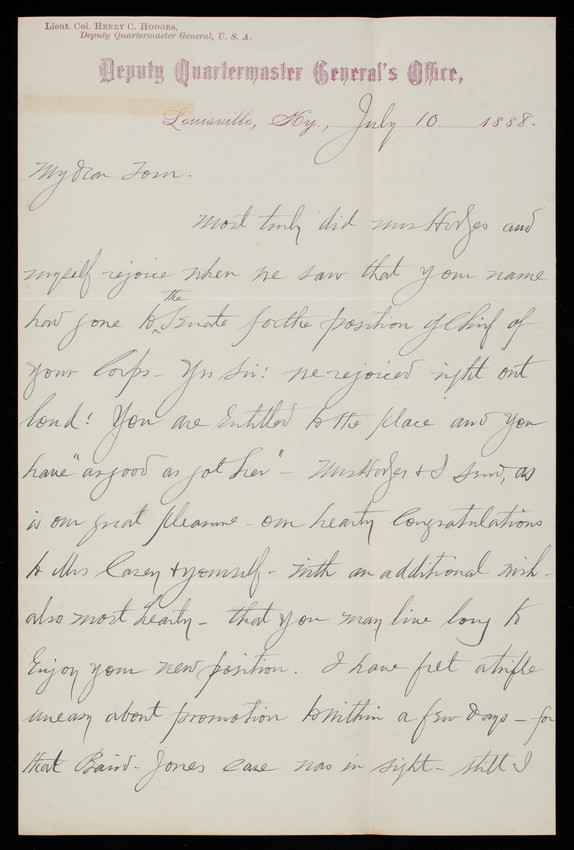 Lieut. Col. HENRY C. HODGES,
Deputy Quartermaster General, U. S. A.
Deputy Quartermaster General's Office,
Louisville, Ky., July 10 1888.
My dear Tom.
Most truly did Mrs Hodges and
myself rejoice when we saw that your name
had gone to the Senate for the position of Chief of
your Corps - Yes Sir! we rejoiced right out
loud! You are Entitled to the place and you
have "as good as got her" - Mrs Hodges & I send, as
is our great pleasure - our hearty Congratulations
to Mrs Casey & yourself - with an additional wish -
also most hearty - that you may live long to
Enjoy your new position. I have felt a trifle
uneasy about promotion to within a few days - for
that Baird-Jones case was in sight - still I